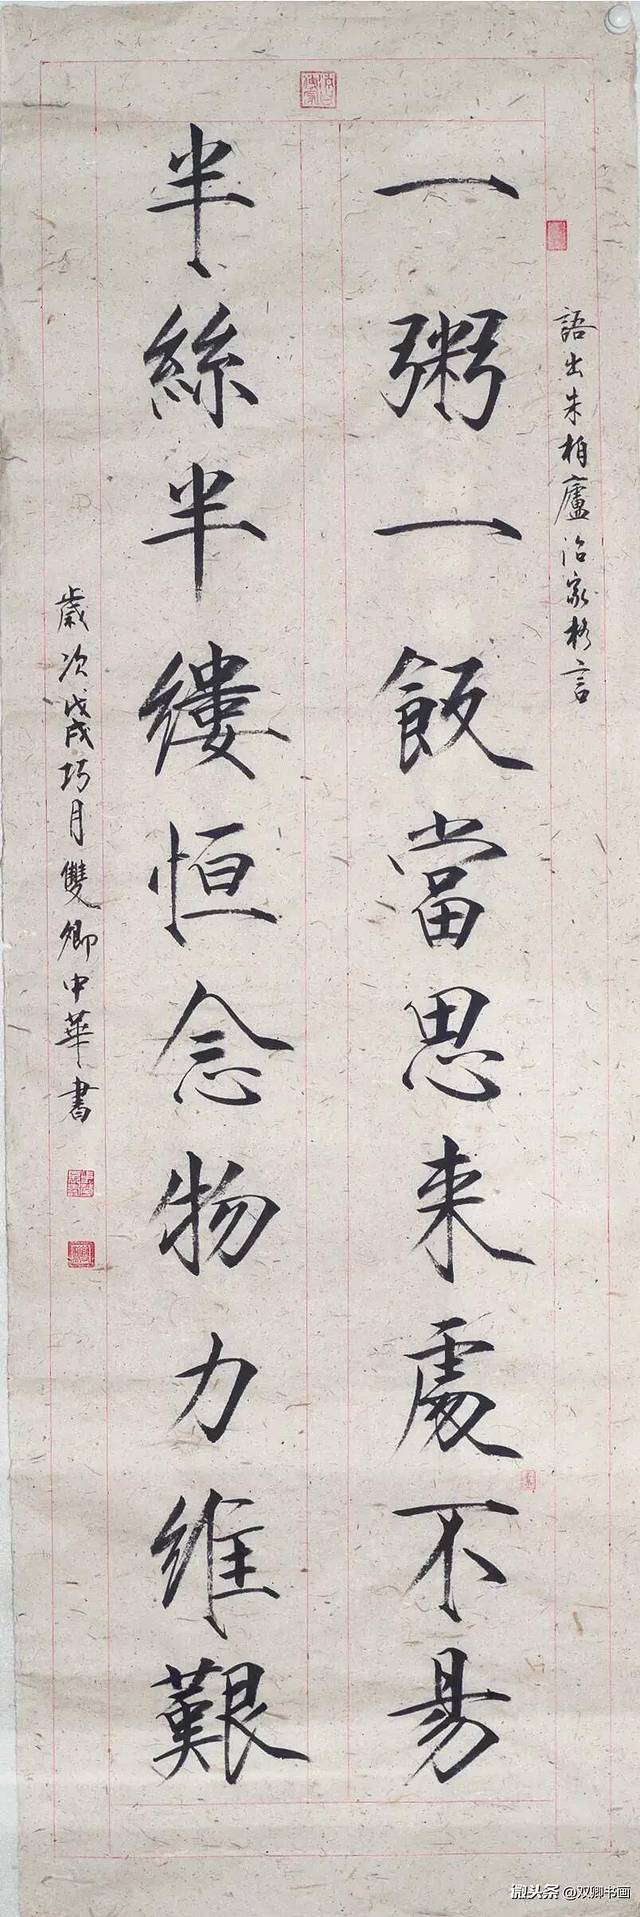 語出朱柏廬治家格言
一粥一飯當思来處不易
半絲半縷恒念物力維艱
歲次戊戌巧月雙卿中華書
微头条@双卿书画